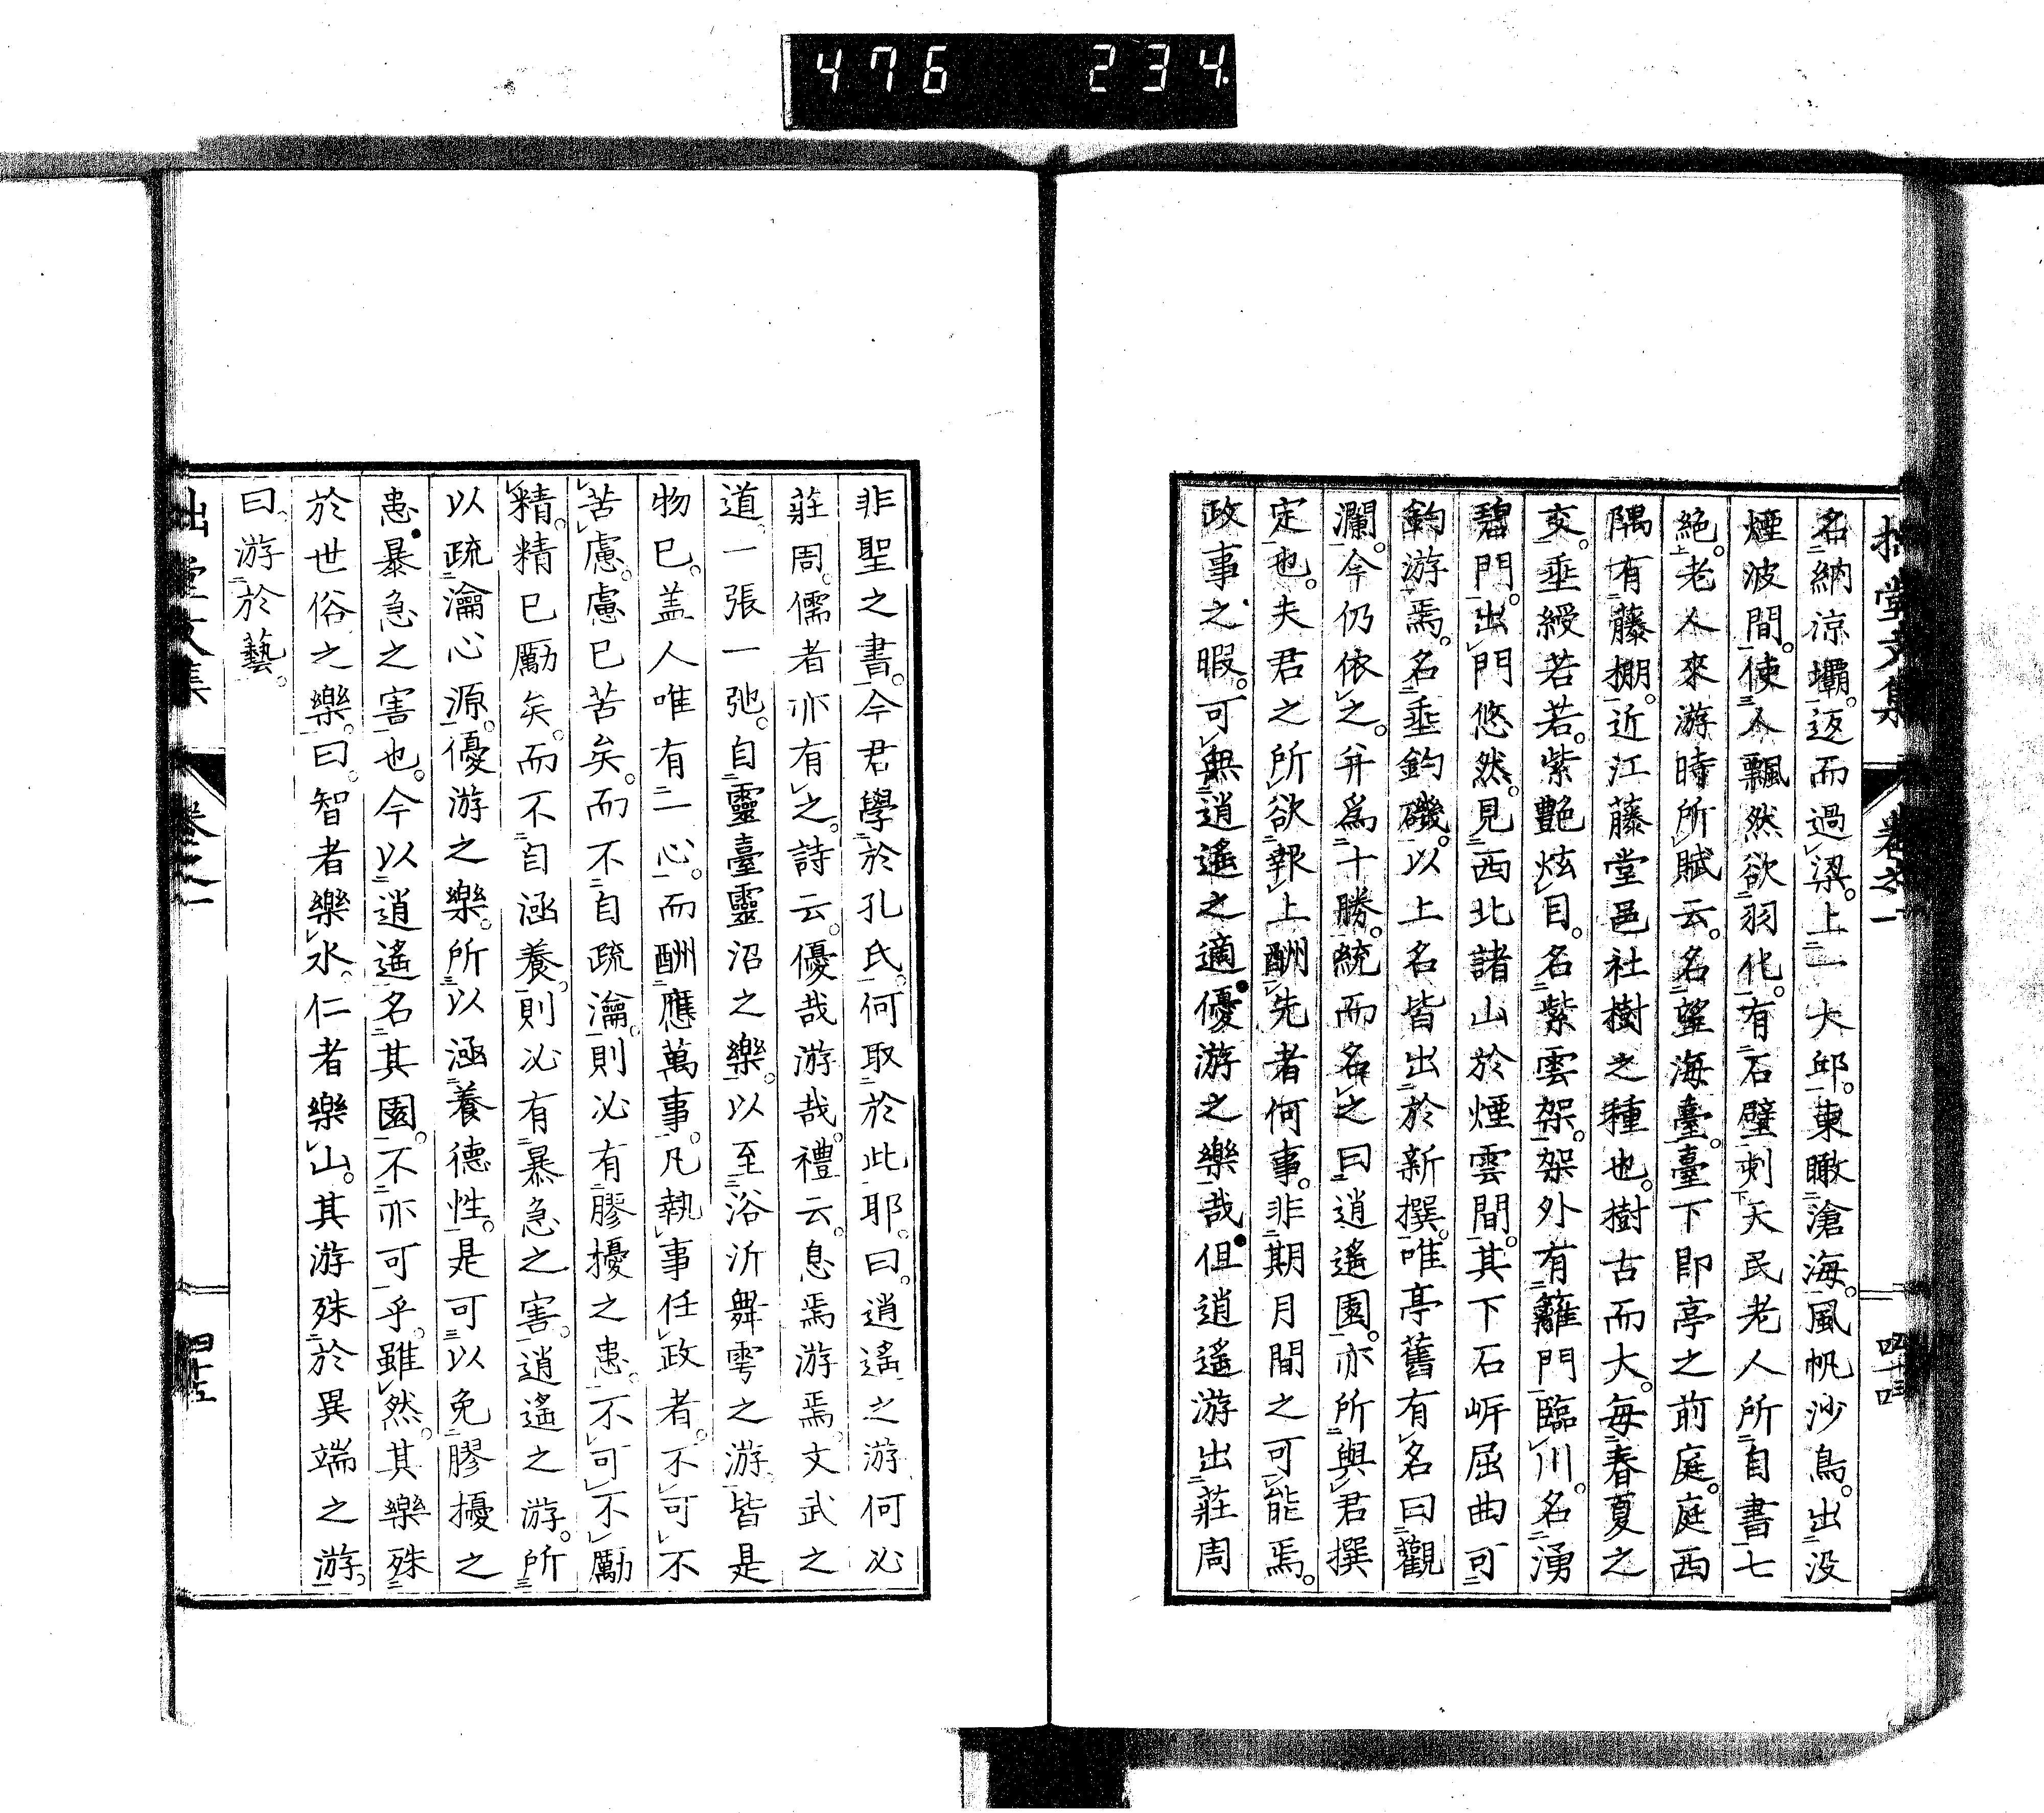 476 234
拙堂文集 卷之一 四十四
名納涼壩。返而過梁。上一大邱。東瞰滄海。風帆沙鳥。出没
煙波間。使人飄然欲羽化。有石壁刺天民老人所自書七
絶。老人來游時所賦云。名望海臺。臺下即亭之前庭。庭西
隅有藤棚。近江藤堂邑社樹之種也。樹古而大。每春夏之
交。垂綬若若。紫艷炫目。名紫雲架。架外有籬門臨川。名湧
碧門。出門悠然。見西北諸山於煙雲間。其下石岍屈曲可
釣游焉。名垂釣磯。以上名皆出於新撰。唯亭舊有名曰觀
瀾。今仍依之。幷爲十勝。統而名之曰逍遙園。亦所與君撰
定也。夫君之所欲報上酬先者何事。非期月間之可能焉。
政事之暇。可無逍遙之適優游之樂哉但逍遙游出莊周
非聖之書。今君學於孔氏。何取於此耶。曰。逍遙之游何必
莊周。儒者亦有之。詩云。優哉游哉。禮云。息焉游焉。文武之
道。一張一弛。自靈臺靈沼之樂。以至浴沂舞雩之游。皆是
物已。盖人唯有一心。而酬應萬事。凡執事任政者。不可不
苦慮。慮已苦矣。而不自疏瀹。則必有膠擾之患。不可不勵
精。精已勵矣。而不自涵養。則必有暴急之害。逍遙之游。所
以疏瀹心源。優游之樂。所以涵養德性。是可以免膠擾之
患暴急之害也。今以逍遙名其園。不亦可乎。雖然。其樂殊
於世俗之樂。曰。智者樂水。仁者樂山。其游殊於異端之游。
曰。游於藝。
拙堂文集 卷之一 四十五